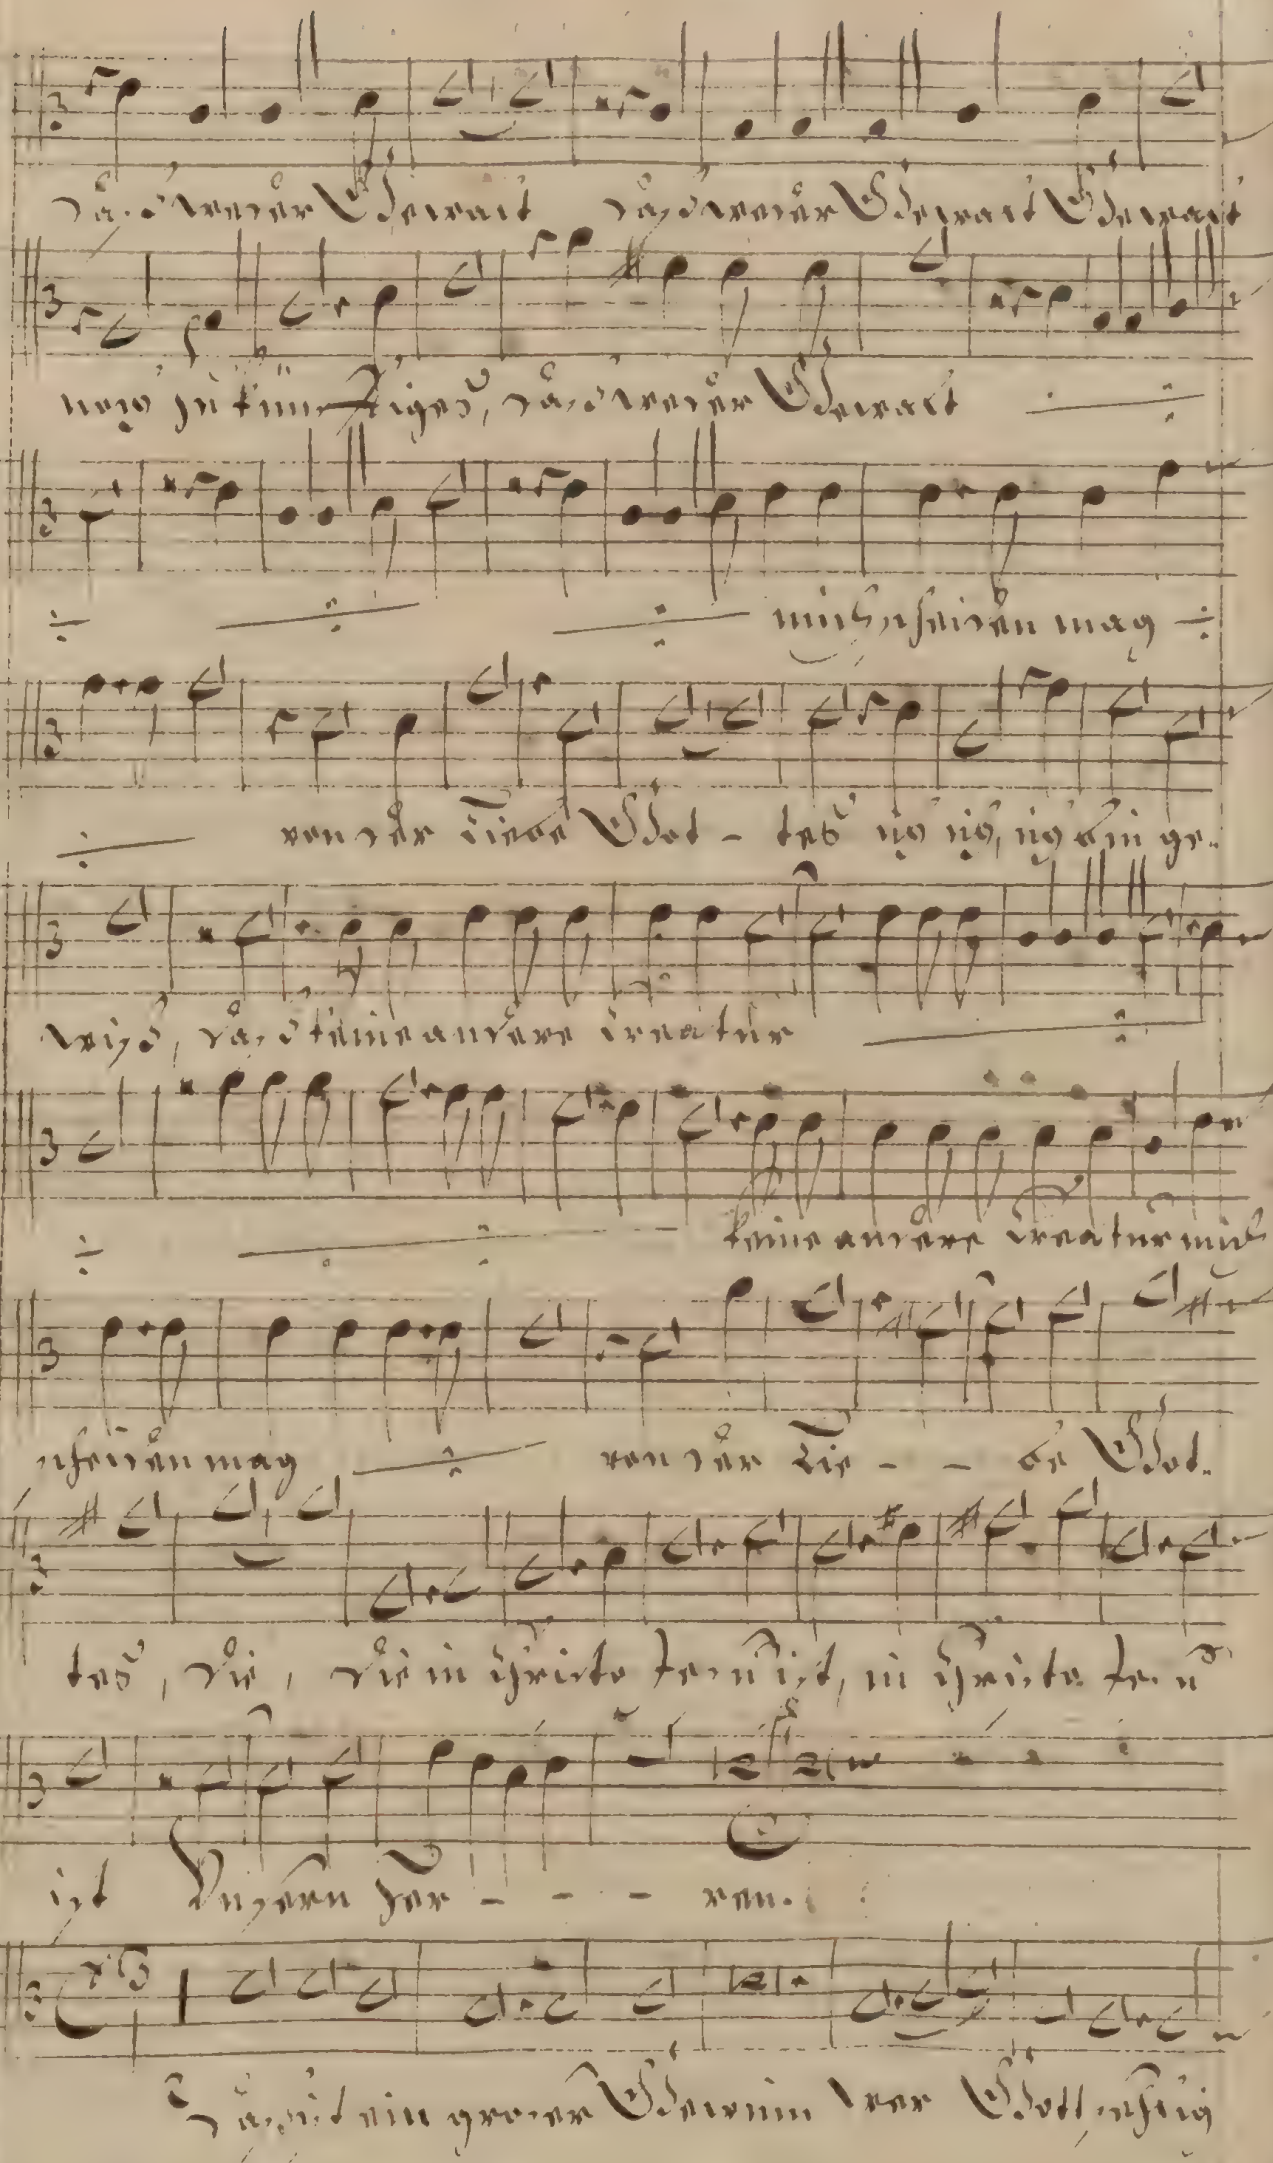 daß weder Gewalt daß weder Gewalt Gewalt
noch zukünftiges, daß weder Gewalt ÷
÷ ÷ ÷ mich scheiden mag ÷
÷ von der Liebe Got - tes ich ich, ich bin ge-
wiß, daß keine andere Creatur ÷
÷ ÷ keine andere Creatur mich
scheiden mag ÷ von der Lie - - be Got-
tes, die, die in Christo Jesu ist, in Christo Jesu
ist Unsern Her - - - ren.
Daß ist ein großer Gewinn wer Gottseelig